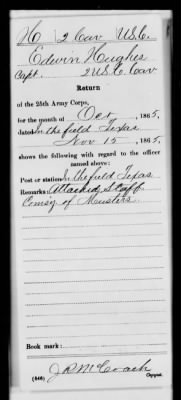 H | 2 Cav | U.S.C.
Edwin Hughes
Capt., 2 U.S.C. Cav
Return
of the 25th Army Corps,
for the month of Oct, 1865,
dated In the field Texas
Nov 15, 1865,
shows the following with regard to the officer
named above:
Post or station: In the field, Texas
Remarks: Attached, Staff
Comsy of Musters.
Book mark:
J R McCoach
(646) Copyist.